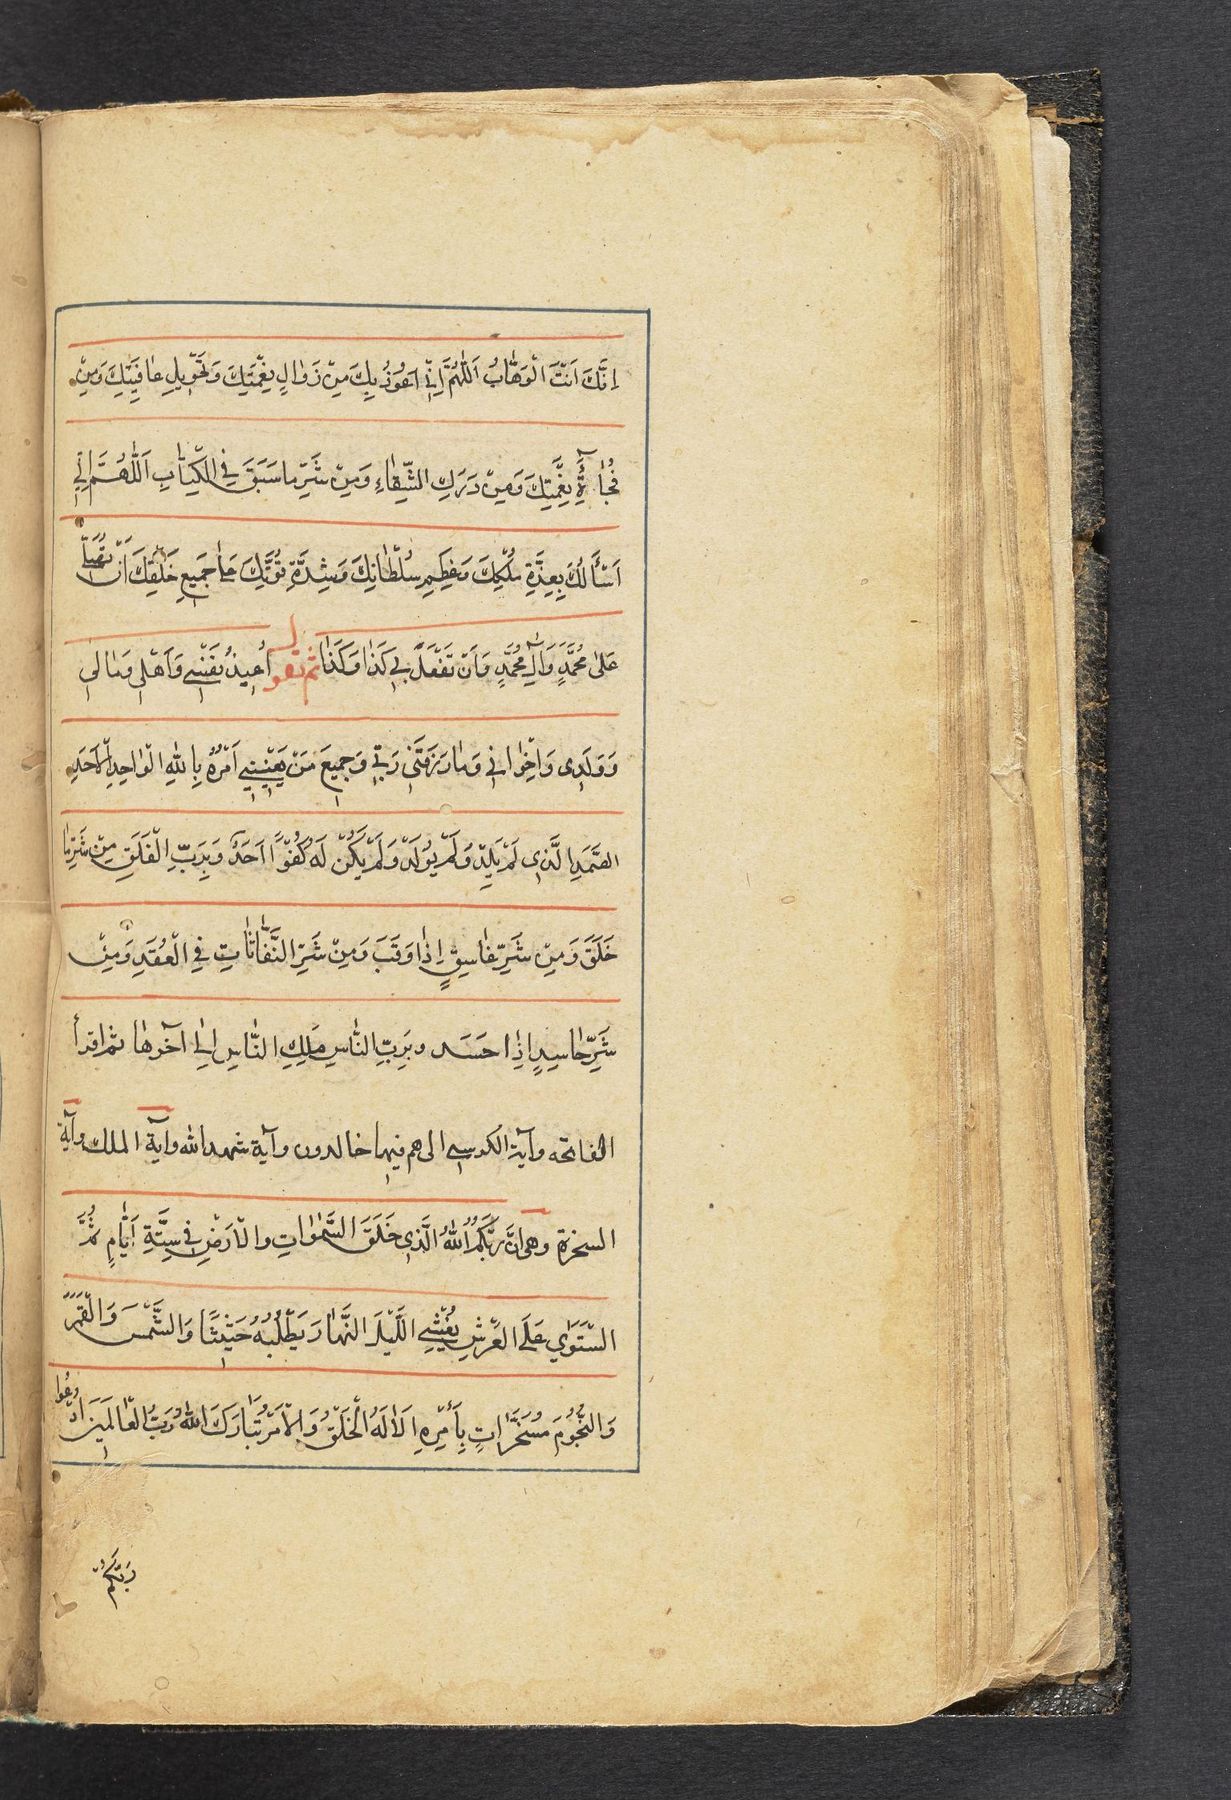 اِنَّكَ اَنْتَ الْوَهّابُ اَللّهُمَّ اِنّي اَعُوذُ بِكَ مِنْ زَوالِ نِعْمَتِكَ وَتَحْويلِ عافِيَتِكَ وَمِنْ
فُجْأَةِ نِقْمَتِكَ وَمِنْ دَرَكِ الشِّقاءِ وَمِنْ شَرِّ ما سَبَقَ فِي الْكِتابِ اَللّهُمَّ اِنّي
اَسْأَلُكَ بِعِزَّةِ مُلْكِكَ وَعَظيمِ سُلْطانِكَ وَشِدَّةِ قُوَّتِكَ عَلى جَميعِ خَلْقِكَ اَنْ تُصَلِّيَ
عَلى مُحَمَّدٍ وَآلِ مُحَمَّدٍ وَاَنْ تَفْعَلَ بي كَذا وَكَذا ثم تقول اُعيذُ نَفْسي وَاَهْلي وَمالي
وَوَلَدي وَاِخْواني وَما رَزَقَني رَبّي وَجَميعَ مَنْ يَعْنيني اَمْرُهُ بِاللهِ الْواحِدِ الْاَحَدِ
الصَّمَدِ الَّذي لَمْ يَلِدْ وَلَمْ يُولَدْ وَلَمْ يَكُنْ لَهُ كُفُوًا اَحَدٌ وَبِرَبِّ الْفَلَقِ مِنْ شَرِّ ما
خَلَقَ وَمِنْ شَرِّ غاسِقٍ اِذا وَقَبَ وَمِنْ شَرِّ النَّفّاثاتِ فِي الْعُقَدِ وَمِنْ
شَرِّ حاسِدٍ اِذا حَسَدَ وبِرَبِّ النّاسِ مَلِكِ النّاسِ اِلى آخرها ثم اقرأ
الفاتحه وآية الكرسي الى هم فيها خالدون وآية شهد الله وآية الملك وآية
السخرة وهي اِنَّ رَبَّكُمُ اللهُ الَّذي خَلَقَ السَّمواتِ والْاَرْضَ في سِتَّةِ اَيّامٍ ثُمَّ
اسْتَوى عَلَى الْعَرْشِ يُغْشِي اللَّيْلَ النَّهارَ يَطْلُبُهُ حَثيثًا وَالشَّمْسَ وَالْقَمَرَ
وَالنُّجُومَ مُسَخَّراتٍ بِأَمْرِهِ اَلا لَهُ الْخَلْقُ وَالْاَمْرُ تَبارَكَ اللهُ رَبُّ الْعالَمينَ ادْعُوا
رَبَّكُمْ